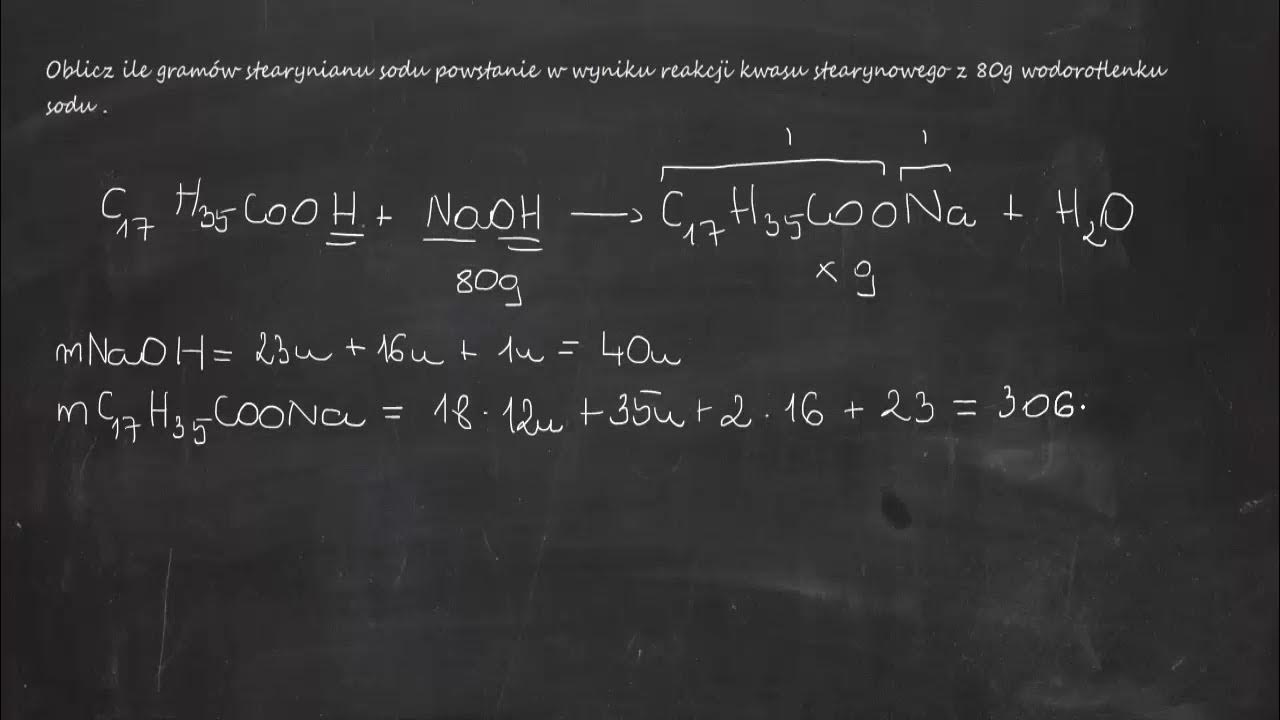 Oblicz ile gramów stearynianu sodu powstanie w wyniku reakcji kwasu stearynowego z 80g wodorotlenku
sodu.
1 1
C₁₇H₃₅COOH + NaOH → C₁₇H₃₅COONa + H₂O
80g x g
mNaOH = 23u + 16u + 1u = 40u
mC₁₇H₃₅COONa = 18·12u + 35u + 2·16 + 23 = 306·